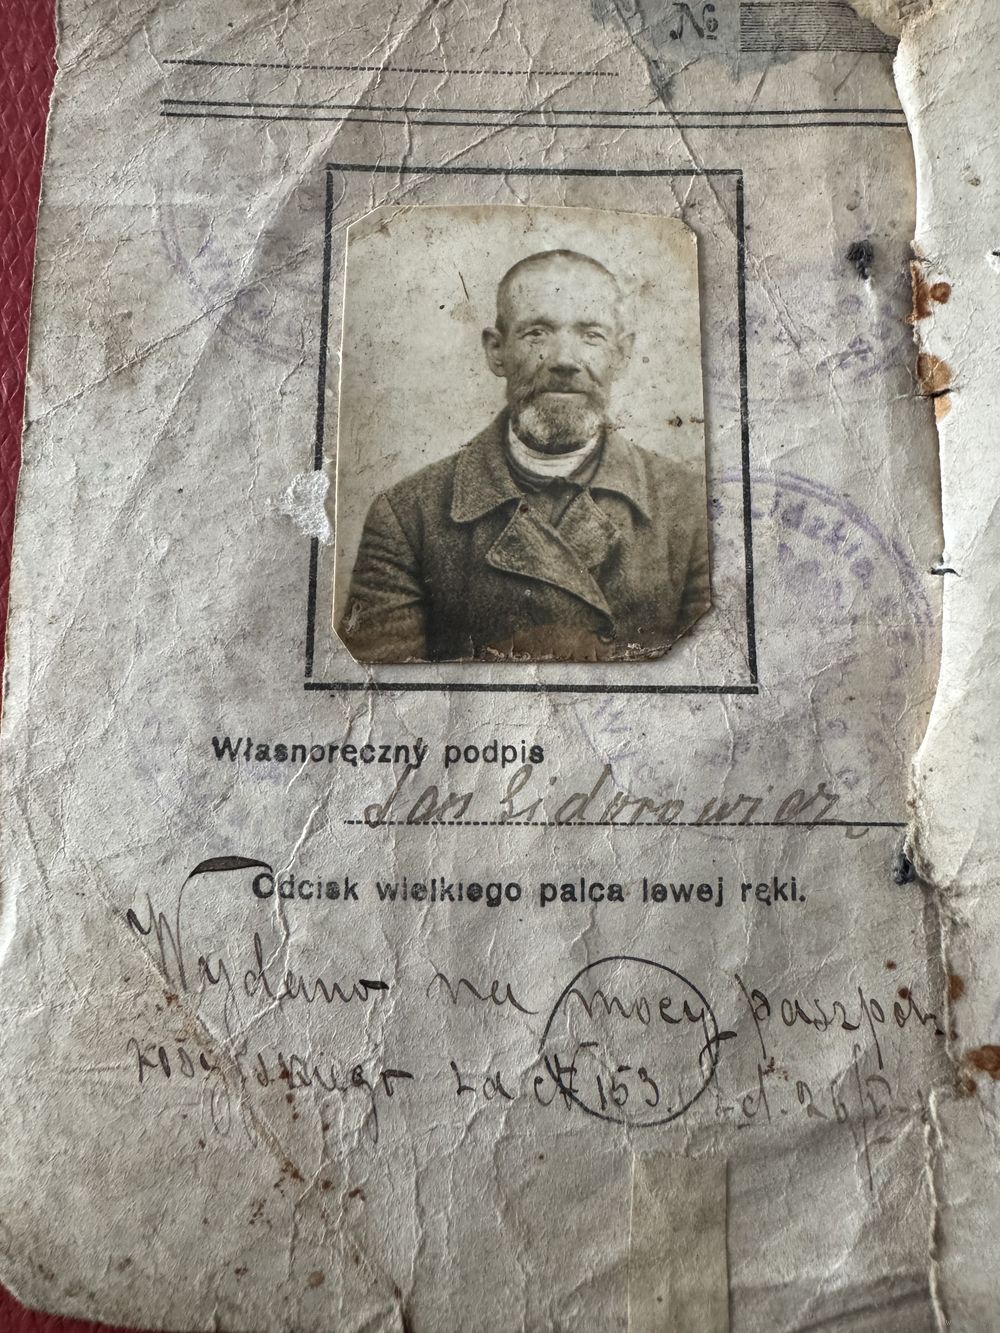 №
Własnoręczny podpis
Jan Sidorowicz
Odcisk wielkiego palca lewej ręki.
Wydano na mocy paszpor.
za № 153. z d. 26/
Lidzki